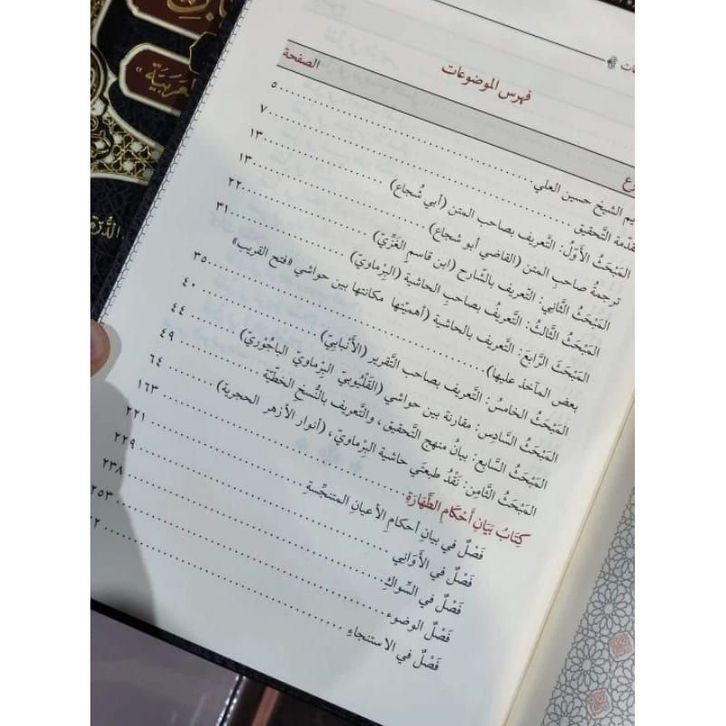 ات
فهرس الموضوعات
ع الصفحة
يم الشيخ حسين العلي ٥
قدّمة التّحقيق ٧
المَبْحَثُ الأوّلُ: التّعريف بصاحب المتن (أبي شُجاع) ١٣
ترجمةُ صاحبِ المتن (القاضي أبو شجاع) ١٣
المَبْحَثُ الثّاني: التّعريف بالشّارح (ابن قاسم الغَزّيّ) ٢٢
المَبْحَثُ الثّالثُ: التّعريف بصاحبِ الحاشية (البِرماويّ) ٣١
المَبْحَثُ الرّابعُ: التّعريف بالحاشية (أهميّتها مكانتها بين حواشي «فتح القريب»
بعض المآخذ عليها) ٣٥
المَبْحَثُ الخامس: التّعريف بصاحب التّقرير (الأَنبابيّ) ٤٠
المَبْحَثُ السّادِس: مقارنة بين حواشي (القَلْيُوبيّ البِرماويّ الباجُوريّ) ٤٤
المَبْحَثُ السّابع: بيانُ منهج التّحقيق، والتّعريف بالنُّسخ الخطيّة ٤٩
المَبْحَثُ الثّامن: نَقْدُ طبعتَي حاشية البرماويّ، (أنوار الأزهر الحجرية) ٦٤
كِتَابُ بَيَانِ أَحْكَامِ الطَّهَارَةِ ١٦٣
فَصْلٌ في بيان أحكامِ الأعيانِ المتنجّسةِ ٢٢١
فَصْلٌ في الأَوَاني ٢٢٩
فَصْلٌ في السِّواكِ ٢٣٨
فَصْلُ الوضوء ٢٥٣
فَصْلٌ في الاستنجاءِ ٢